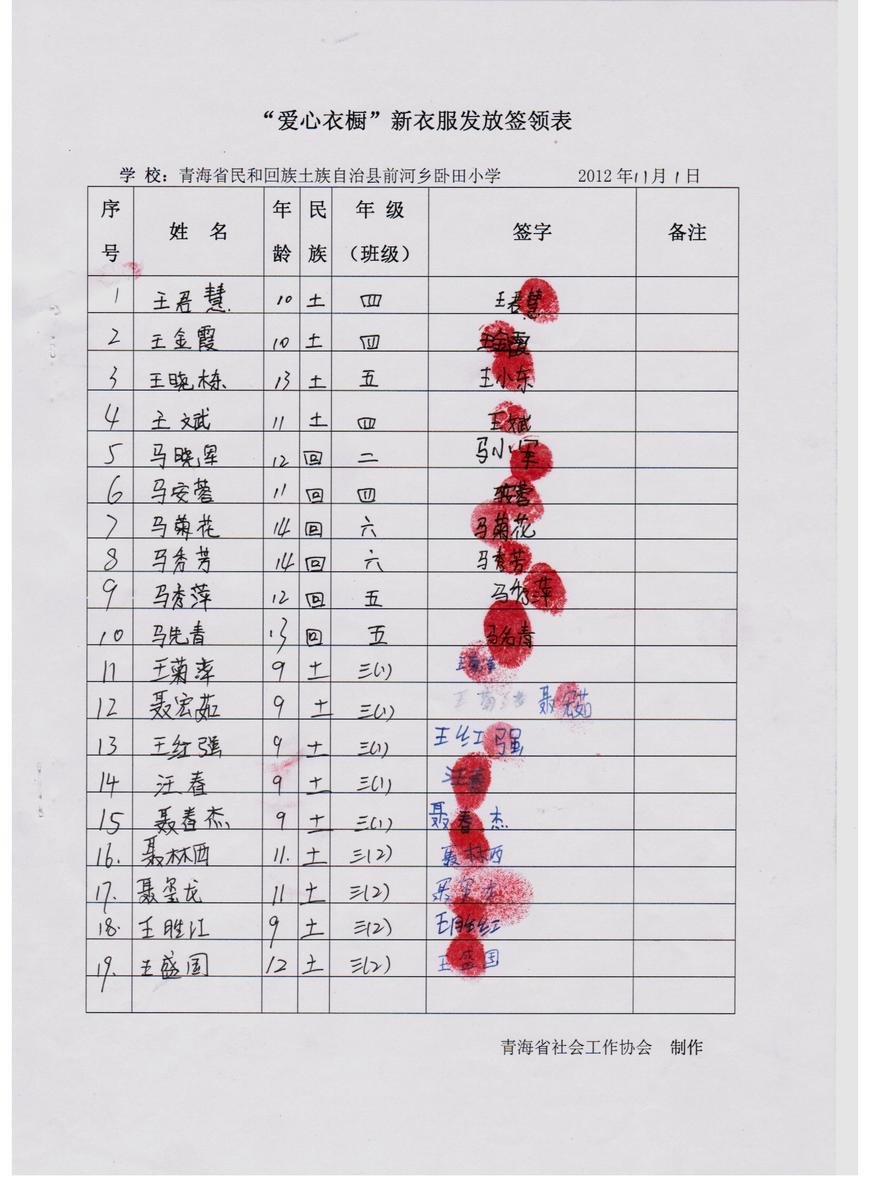 “爱心衣橱”新衣服发放签领表
学 校：青海省民和回族土族自治县前河乡卧田小学 2012 年11月1日
序号 姓 名 年龄 民族 年 级（班级） 签字 备注
1 王君慧 10 土 四 王君慧
2 王金霞 10 土 四 王金霞
3 王晓栋 13 土 五 王小东
4 王斌 11 土 四 王斌
5 马晓军 12 回 二 马小军
6 马安蓉 11 回 四 安蓉
7 马菊花 14 回 六 马菊花
8 马秀芳 14 回 六 马秀芳
9 马秀萍 12 回 五 马秀萍
10 马先青 13 回 五 马先青
11 王菊萍 9 土 三(1) 王菊萍
12 聂宏茹 9 土 三(1) 聂宏茹
13 王红强 9 土 三(1) 王红强
14 汪春 9 土 三(1) 汪春
15 聂春杰 9 土 三(1) 聂春杰
16. 聂林西 11. 土 三(2) 聂林西
17. 聂玺龙 11 土 三(2)
18. 王胜江 9 土 三(2) 王胜红
19. 王盛国 12 土 三(2) 王盛国
青海省社会工作协会 制作